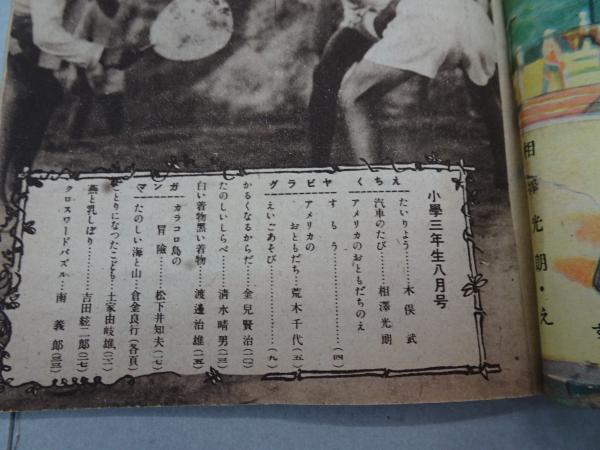 小學三年生八月号
くちえ
たいりょう………木俣武
汽車のたび………相澤光朗
アメリカのおともだちのえ
グラビヤ
すもう…………(四)
アメリカの
おともだち…荒木千代(五)
えいごあそび………(九)
かるくなるからだ…金兒賢治(一一)
たのしいしらべ……清水晴男(一三)
白い着物黒い着物…渡邊治雄(一五)
マンガ
カラコロ島の
冒險…松下井知夫(一七)
たのしい海と山…倉金良行(各頁)
ことりになったこども…土家由岐雄(二一)
燕と乳しぼり………吉田絃二郎(二七)
クロスワードパズル…南義郎(三三)
相澤光朗・え